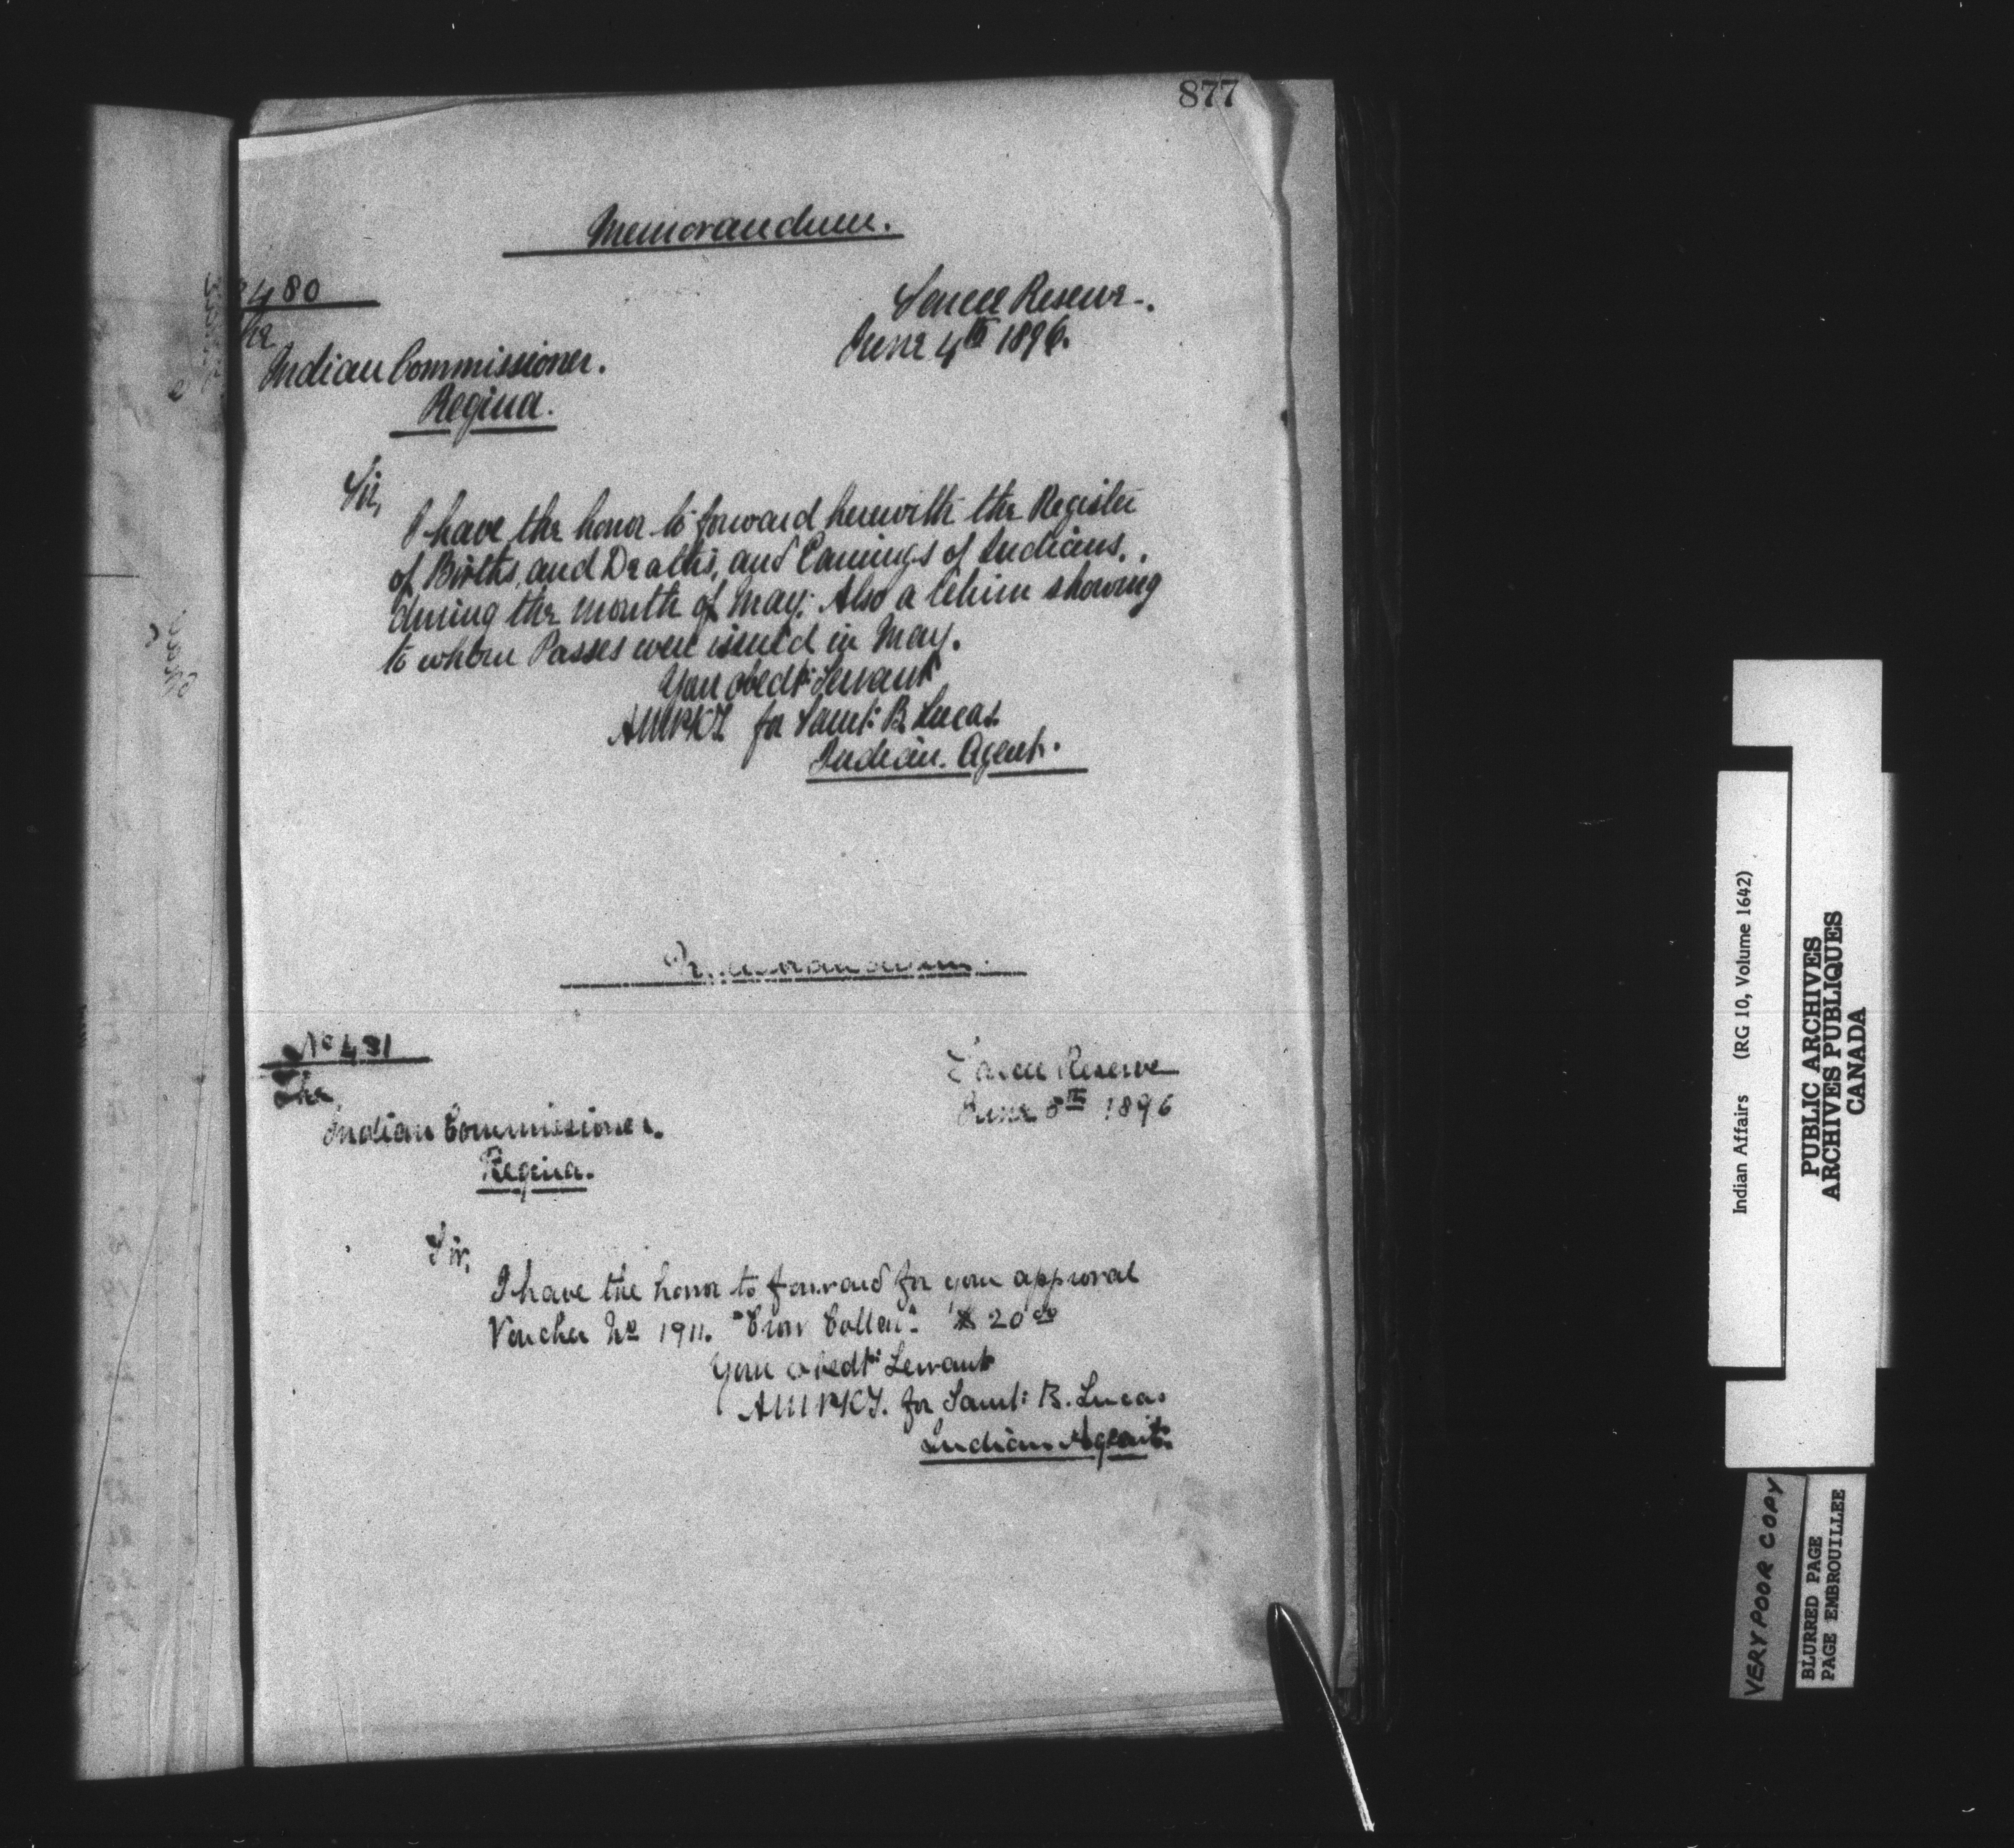 877
Memorandum.
480
Sarcee Reserve.
June 4th 1896.
Indian Commissioner.
Regina.
Sir,
I have the honor to forward herewith the Register
of Births, and Deaths, and Earnings of Indians,
during the month of May; Also a return showing
to whom Passes were issued in May.
Your obedt: Servant
for Saml: B. Lucas
Indian Agent.
Memorandum.
No 481
Sarcee Reserve
June 8th 1896
The
Indian Commissioner.
Regina.
Sir,
I have the honor to forward for your approval
Voucher No 1911. "Crow Collar". $20.00
Your obedt: Servant
for Saml: B. Lucas
Indian Agent.
Indian Affairs (RG 10, Volume 1642)
PUBLIC ARCHIVES
ARCHIVES PUBLIQUES
CANADA
VERY POOR COPY
BLURRED PAGE
PAGE EMBROUILLEE